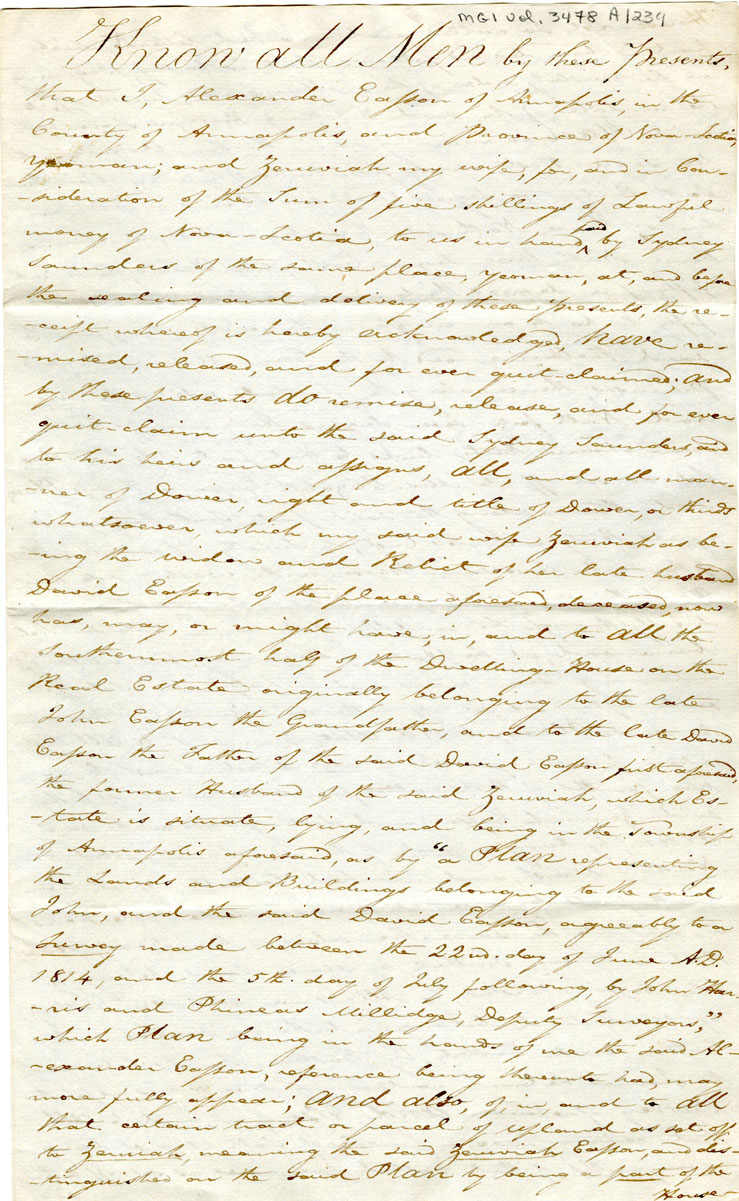 MG1 Vol. 3478 A/239
Know all Men by these Presents,
that I, Alexander Easson of Annapolis, in the
County of Annapolis, and Province of Nova-Scotia,
yeoman; and Zeruiah my wife, for, and in Con-
-sideration of the Sum of five shillings of Lawful
money of Nova-Scotia, to us in hand paid by Sydney
Saunders of the same place, yeoman, at, and before
the sealing and delivery of these Presents, the re-
-ceipt whereof is hereby acknowledged, have re-
-mised, released, and for ever quit-claimed; and
by these presents do remise, release, and for ever
quit-claim unto the said Sydney Saunders, and
to his heirs and assigns, all, and all man-
-ner of Dower, right and title of Dower, or thirds
whatsoever, which my said wife Zeruiah as be-
-ing the widow and Relict of her late husband
David Easson of the place aforesaid, deceased, now
has, may, or might have, in, and to all the
Southernmost half of the Dwelling-House on the
Real Estate originally belonging to the late
John Easson the Grandfather, and to the late David
Easson the Father of the said David Easson first aforesaid,
the former Husband of the said Zeruiah, which Es-
-tate is situate, lying, and being in the Township
of Annapolis aforesaid, as by "a Plan representing
the Lands and Buildings belonging to the said
John, and the said David Easson, agreeably to a
Survey made between the 22nd. day of June A.D.
1814, and the 5th. day of July following, by John Har-
-ris and Phineas Millidge, Deputy Surveyors,"
which Plan being in the hands of me the said Al-
-exander Easson, reference being thereunto had, may
more fully appear; and also, of, in, and to all
that certain tract or parcel of upland as set off
to Zeruiah, meaning the said Zeruiah Easson, and dis-
-tinguished on the said Plan by being a part of the
House-